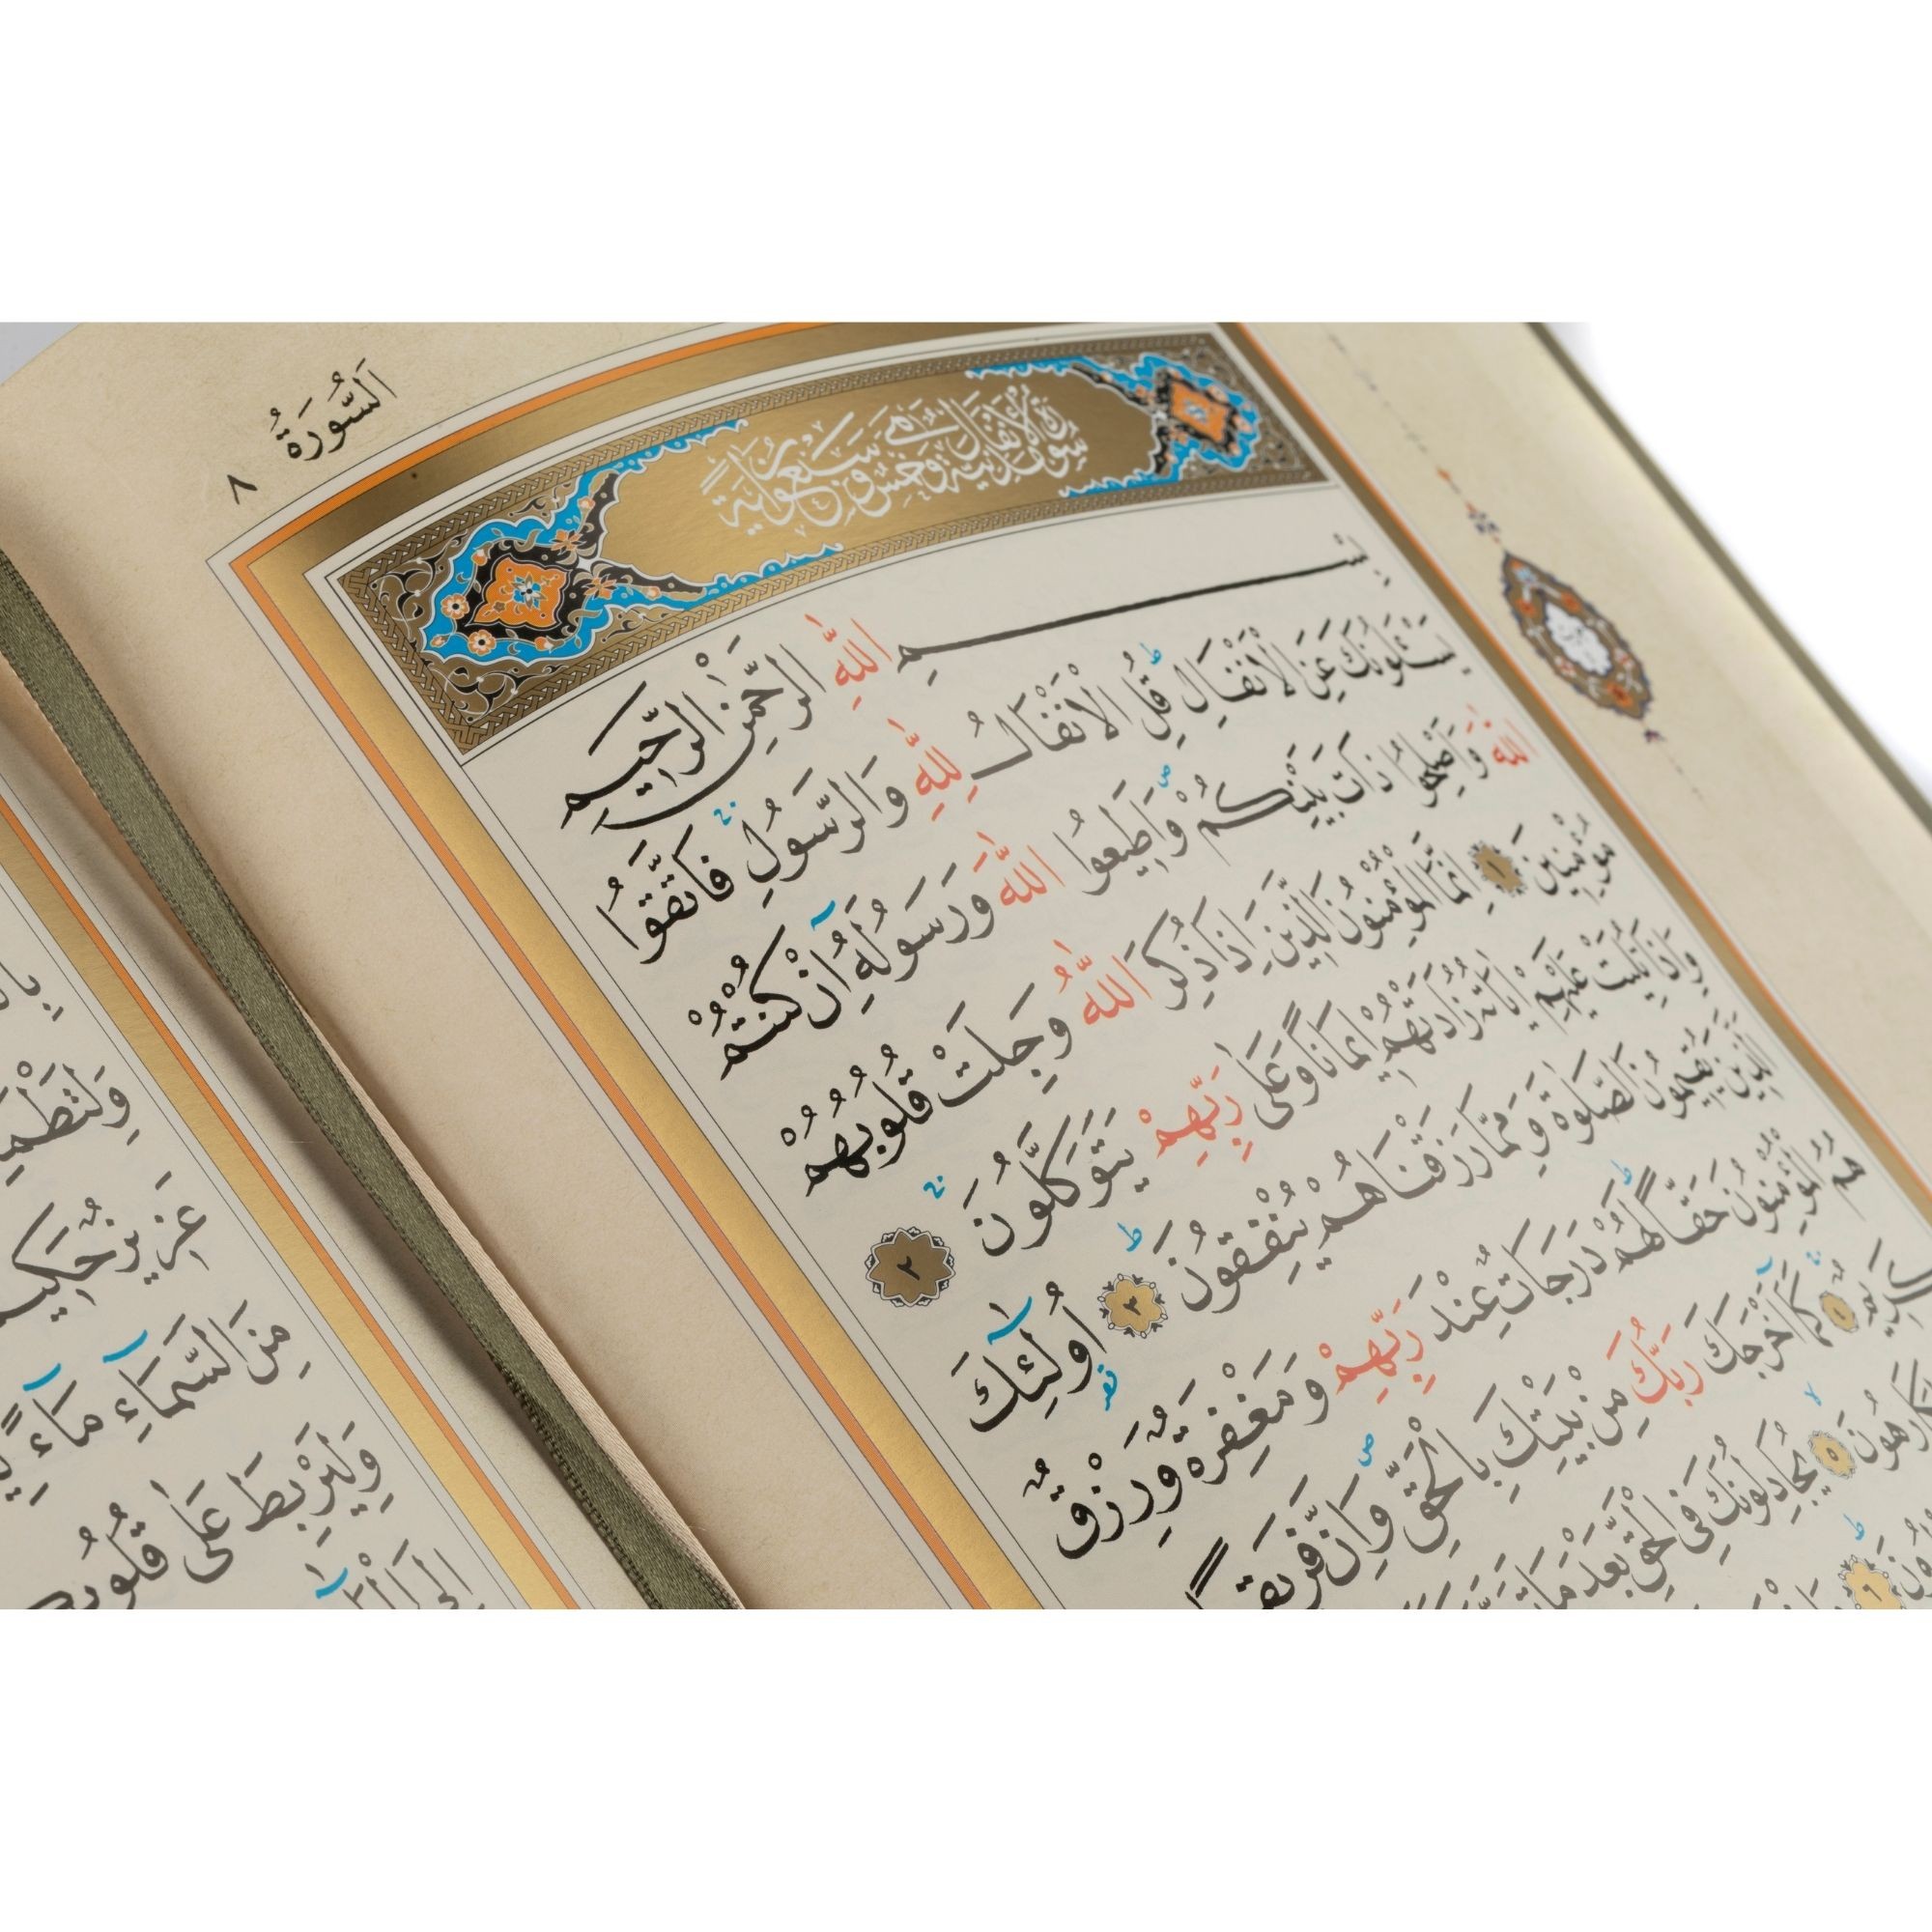 اَلسُّورَةُ ٨
سُورَةُ الْاَنْفَالِ مَدَنِيَّةٌ وَهِيَ خَمْسٌ وَسَبْعُونَ اٰيَةً
بِسْمِ اللّٰهِ الرَّحْمٰنِ الرَّحِيمِ
يَسْـَٔلُونَكَ عَنِ الْاَنْفَالِ ط قُلِ الْاَنْفَالُ لِلّٰهِ وَالرَّسُولِ ج فَاتَّقُوا
اللّٰهَ وَاَصْلِحُوا ذَاتَ بَيْنِكُمْ ص وَاَطِيعُوا اللّٰهَ وَرَسُولَهُٓ اِنْ كُنْتُمْ
مُؤْمِنِينَ ١ اِنَّمَا الْمُؤْمِنُونَ الَّذِينَ اِذَا ذُكِرَ اللّٰهُ وَجِلَتْ قُلُوبُهُمْ
وَاِذَا تُلِيَتْ عَلَيْهِمْ اٰيَاتُهُ زَادَتْهُمْ اِيمَانًا وَعَلٰى رَبِّهِمْ يَتَوَكَّلُونَ ج ٢
اَلَّذِينَ يُقِيمُونَ الصَّلٰوةَ وَمِمَّا رَزَقْنَاهُمْ يُنْفِقُونَ ط ٣ اُولٰٓئِكَ
هُمُ الْمُؤْمِنُونَ حَقًّا ط لَهُمْ دَرَجَاتٌ عِنْدَ رَبِّهِمْ وَمَغْفِرَةٌ وَرِزْقٌ
كَرِيمٌ ٤ كَمَٓا اَخْرَجَكَ رَبُّكَ مِنْ بَيْتِكَ بِالْحَقِّ ص وَاِنَّ فَرِيقًا
لَكَارِهُونَ ٥ يُجَادِلُونَكَ فِي الْحَقِّ بَعْدَ مَا
٦
وَلِتَطْمَئِنَّ
عَزِيزٌ حَكِيمٌ
مِنَ السَّمَٓاءِ مَٓاءً
وَلِيَرْبِطَ عَلٰى قُلُوبِكُمْ